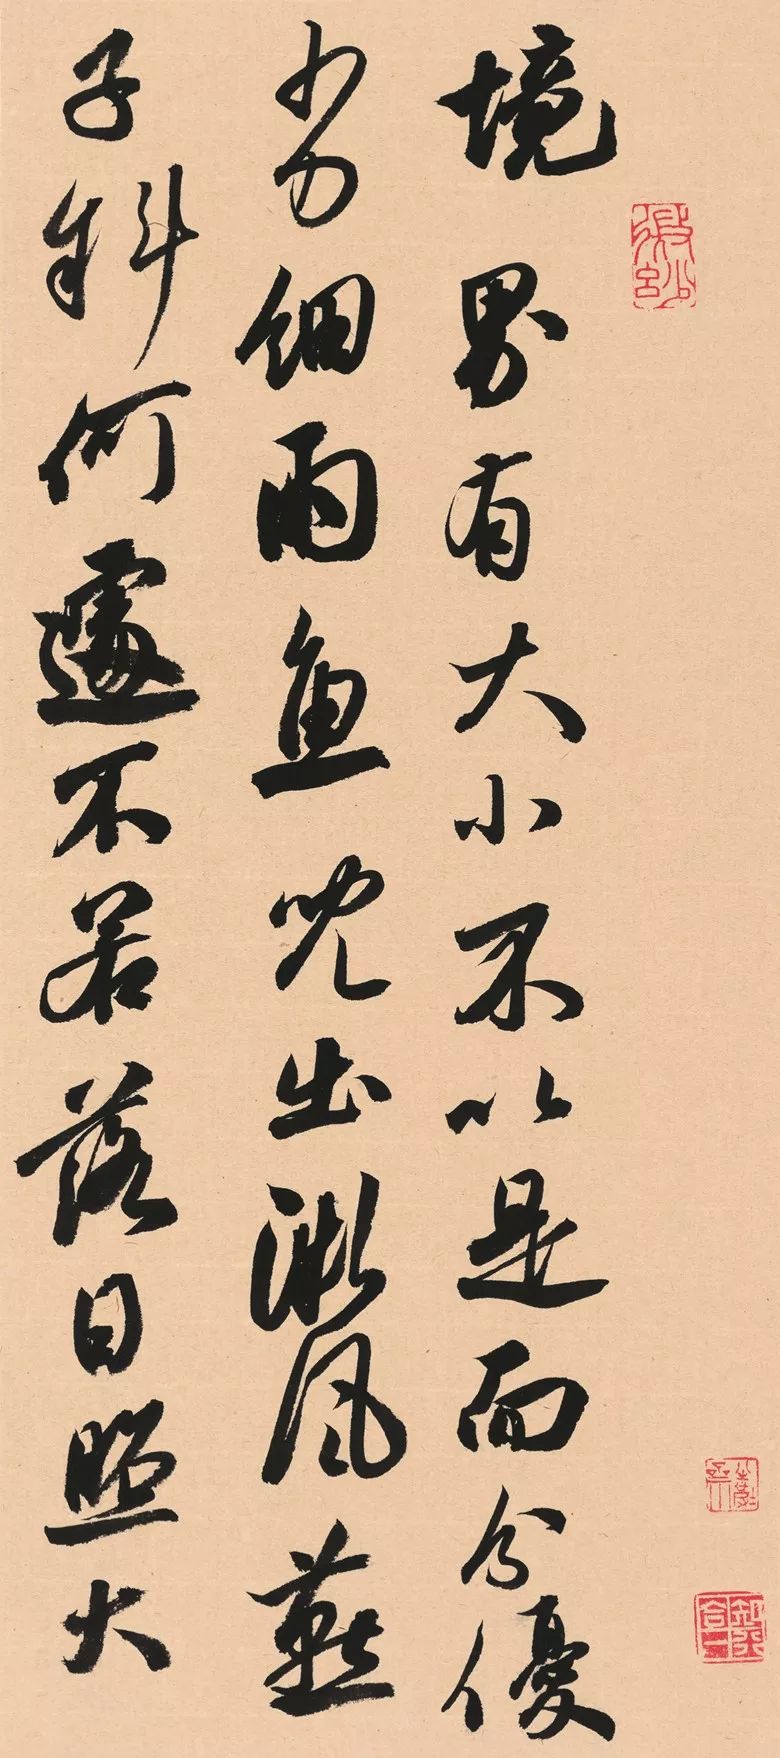 境界有大小不以是而分優
劣細雨魚兒出微風燕
子斜何遽不若落日照大
知行合一